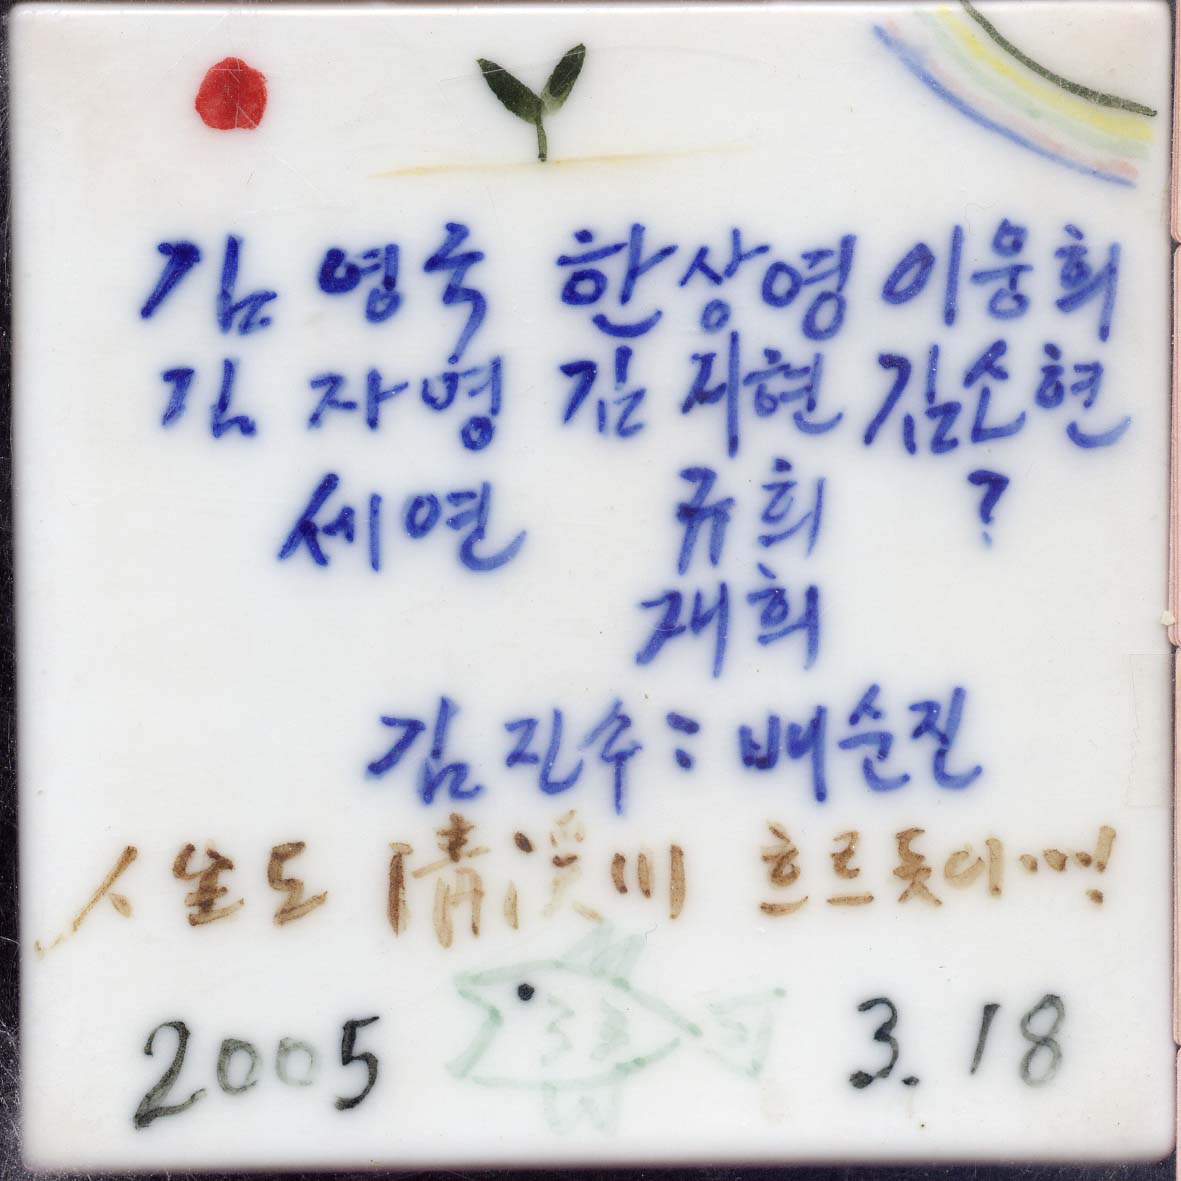 김 영국 한상영 이웅희
김 자영 김지현 김소현
세연 규희 ?
재희
김진수 : 배순진
人生도 淸溪川 흐르듯이....!
2005 3.18